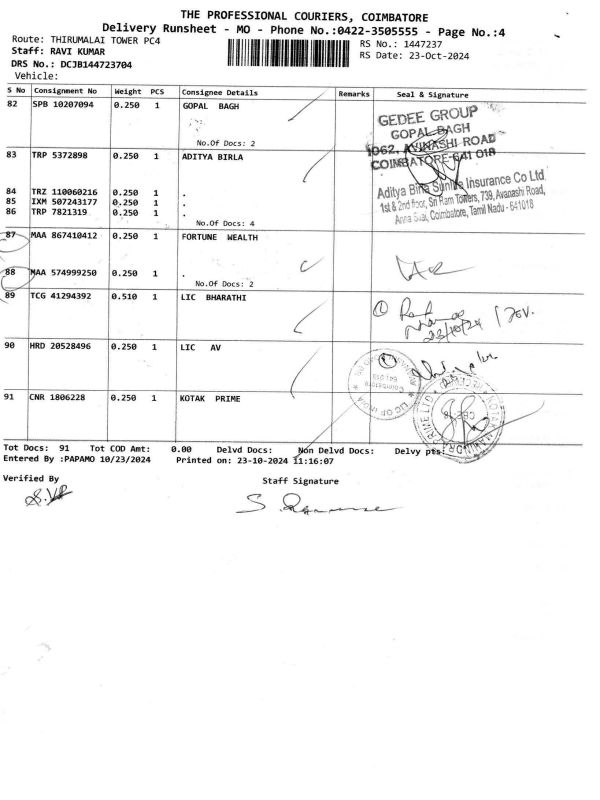 THE PROFESSIONAL COURIERS, COIMBATORE
Delivery Runsheet - MO - Phone No.:0422-3505555 - Page No.:4
Route: THIRUMALAI TOWER PC4
Staff: RAVI KUMAR
DRS No.: DCJB144723704
Vehicle:
RS No.: 1447237
RS Date: 23-Oct-2024
S No Consignment No Weight PCS Consignee Details Remarks Seal & Signature
82 SPB 10207094 0.250 1 GOPAL BAGH
No.Of Docs: 2
GEDEE GROUP
GOPAL BAGH
1062, AVINASHI ROAD
COIMBATORE-641 018
83 TRP 5372898 0.250 1 ADITYA BIRLA
84 TRZ 110060216 0.250 1 .
85 IXM 507243177 0.250 1 .
86 TRP 7821319 0.250 1 .
No.Of Docs: 4
Aditya Birla Sunlife Insurance Co Ltd.
1st & 2nd floor, Sri Ram Towers, 739, Avanashi Road,
Anna Salai, Coimbatore, Tamil Nadu - 641018
87 MAA 867410412 0.250 1 FORTUNE WEALTH
88 MAA 574999250 0.250 1 .
No.Of Docs: 2
89 TCG 41294392 0.510 1 LIC BHARATHI
23/10/24
90 HRD 20528496 0.250 1 LIC AV
LIC OF INDIA
91 CNR 1806228 0.250 1 KOTAK PRIME
KOTAK MAHINDRA PRIME LTD
Tot Docs: 91 Tot COD Amt: 0.00 Delvd Docs: Non Delvd Docs: Delvy pts:
Entered By :PAPAMO 10/23/2024 Printed on: 23-10-2024 11:16:07
Verified By Staff Signature